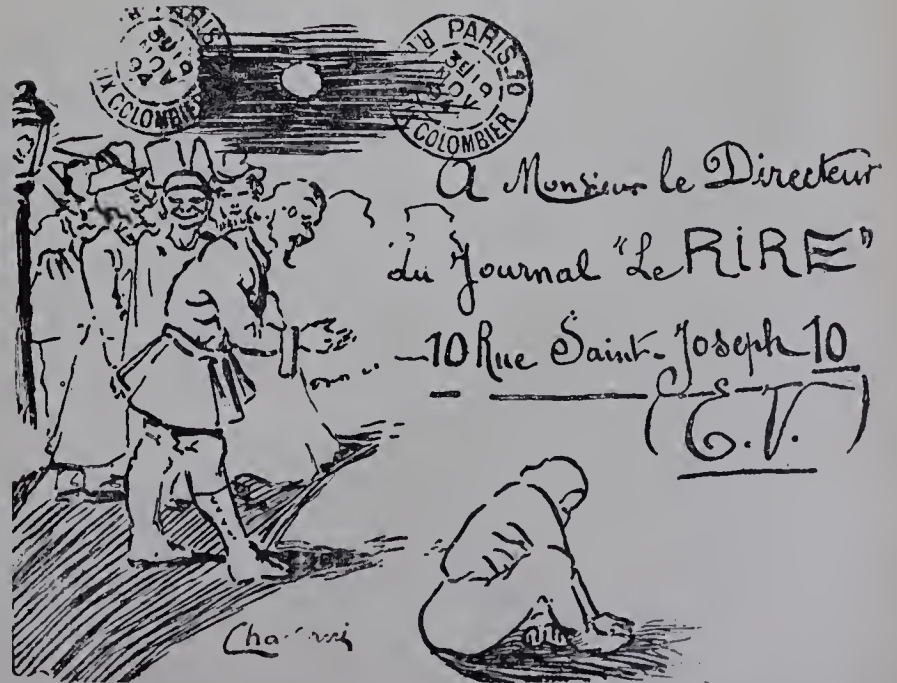 PARIS
COLOMBIER
R. PARIS 10
COLOMBIER
A Monsieur le Directeur
du Journal "Le RiRE"
-10 Rue Saint-Joseph 10
(E.V.)